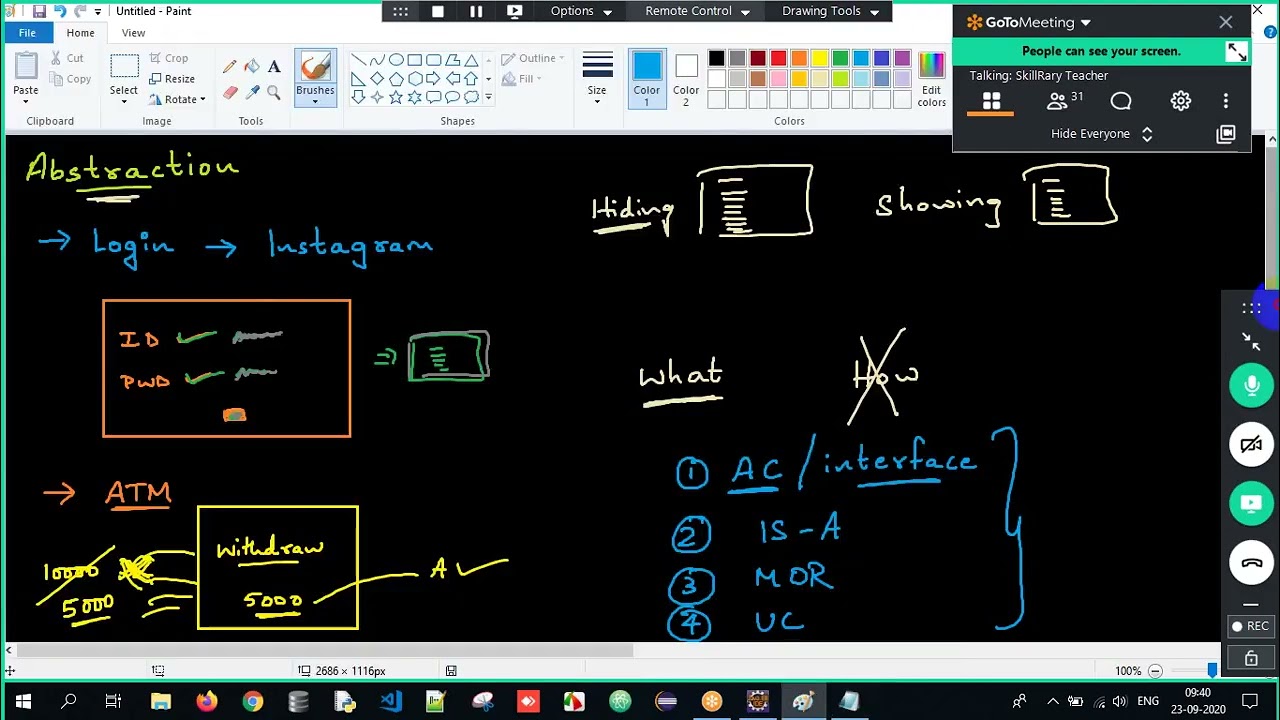 Untitled - Paint
Options
Remote Control
Drawing Tools
GoToMeeting
File
Home
View
People can see your screen.
Talking: SkillRary Teacher
31
Hide Everyone
Paste
Cut
Copy
Clipboard
Select
Crop
Resize
Rotate
Image
A
Tools
Brushes
Outline
Fill
Shapes
Size
Color
1
Color
2
Edit
colors
Colors
Abstraction
Hiding
Showing
→ Login → Instagram
ID
PWD
What
How
① AC / interface
② IS - A
③ MOR
④ UC
→ ATM
withdraw
5000
10000
5000
A
REC
2686 × 1116px
100%
ENG
09:40
23-09-2020